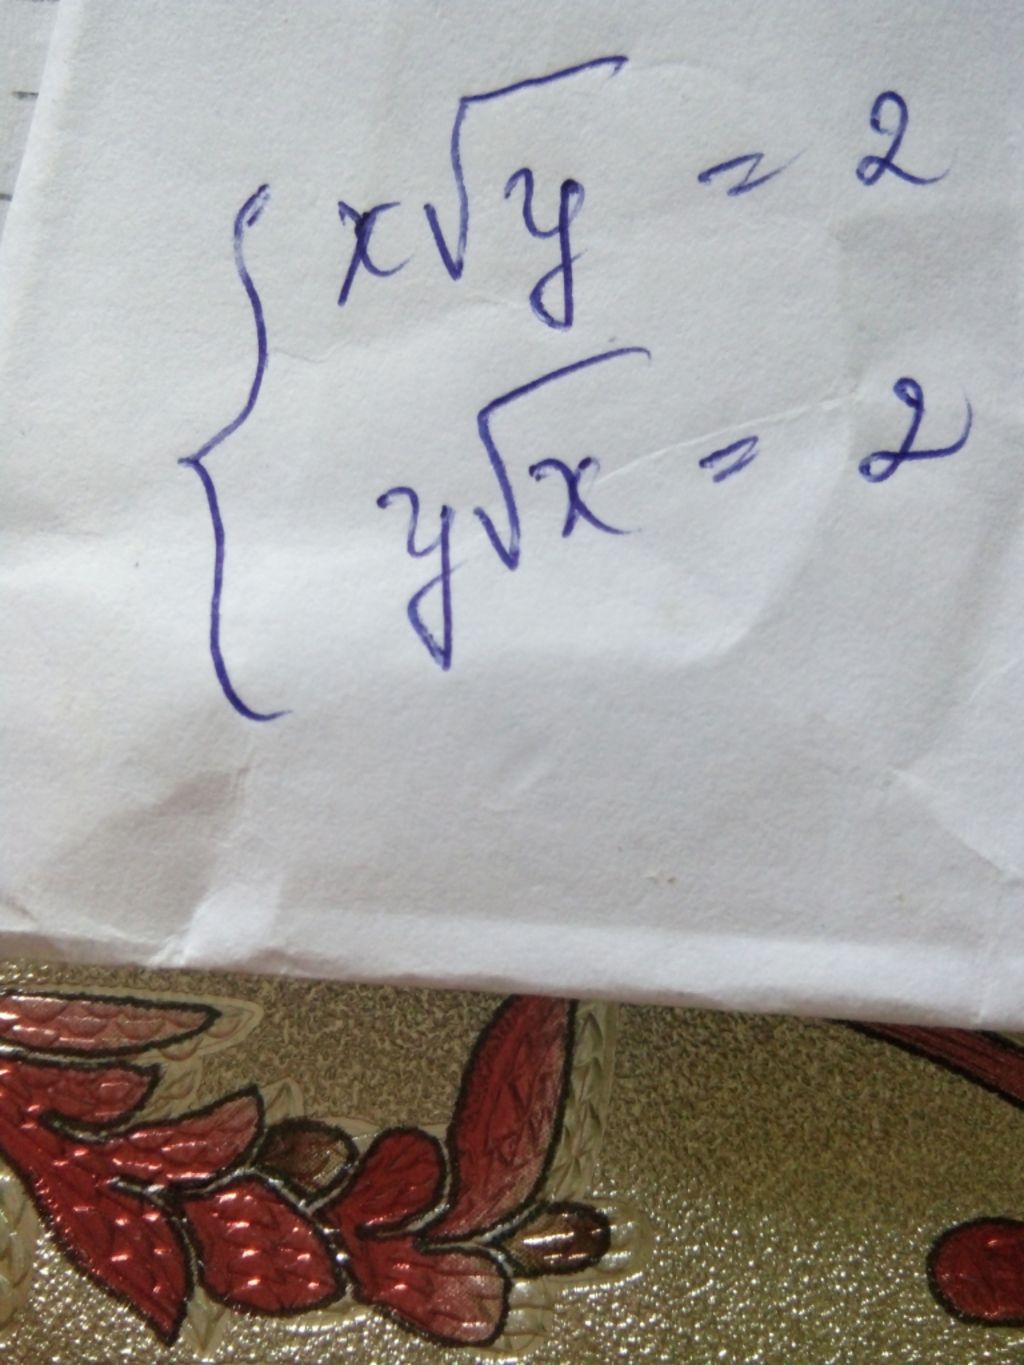 x√y = 2
y√x = 2